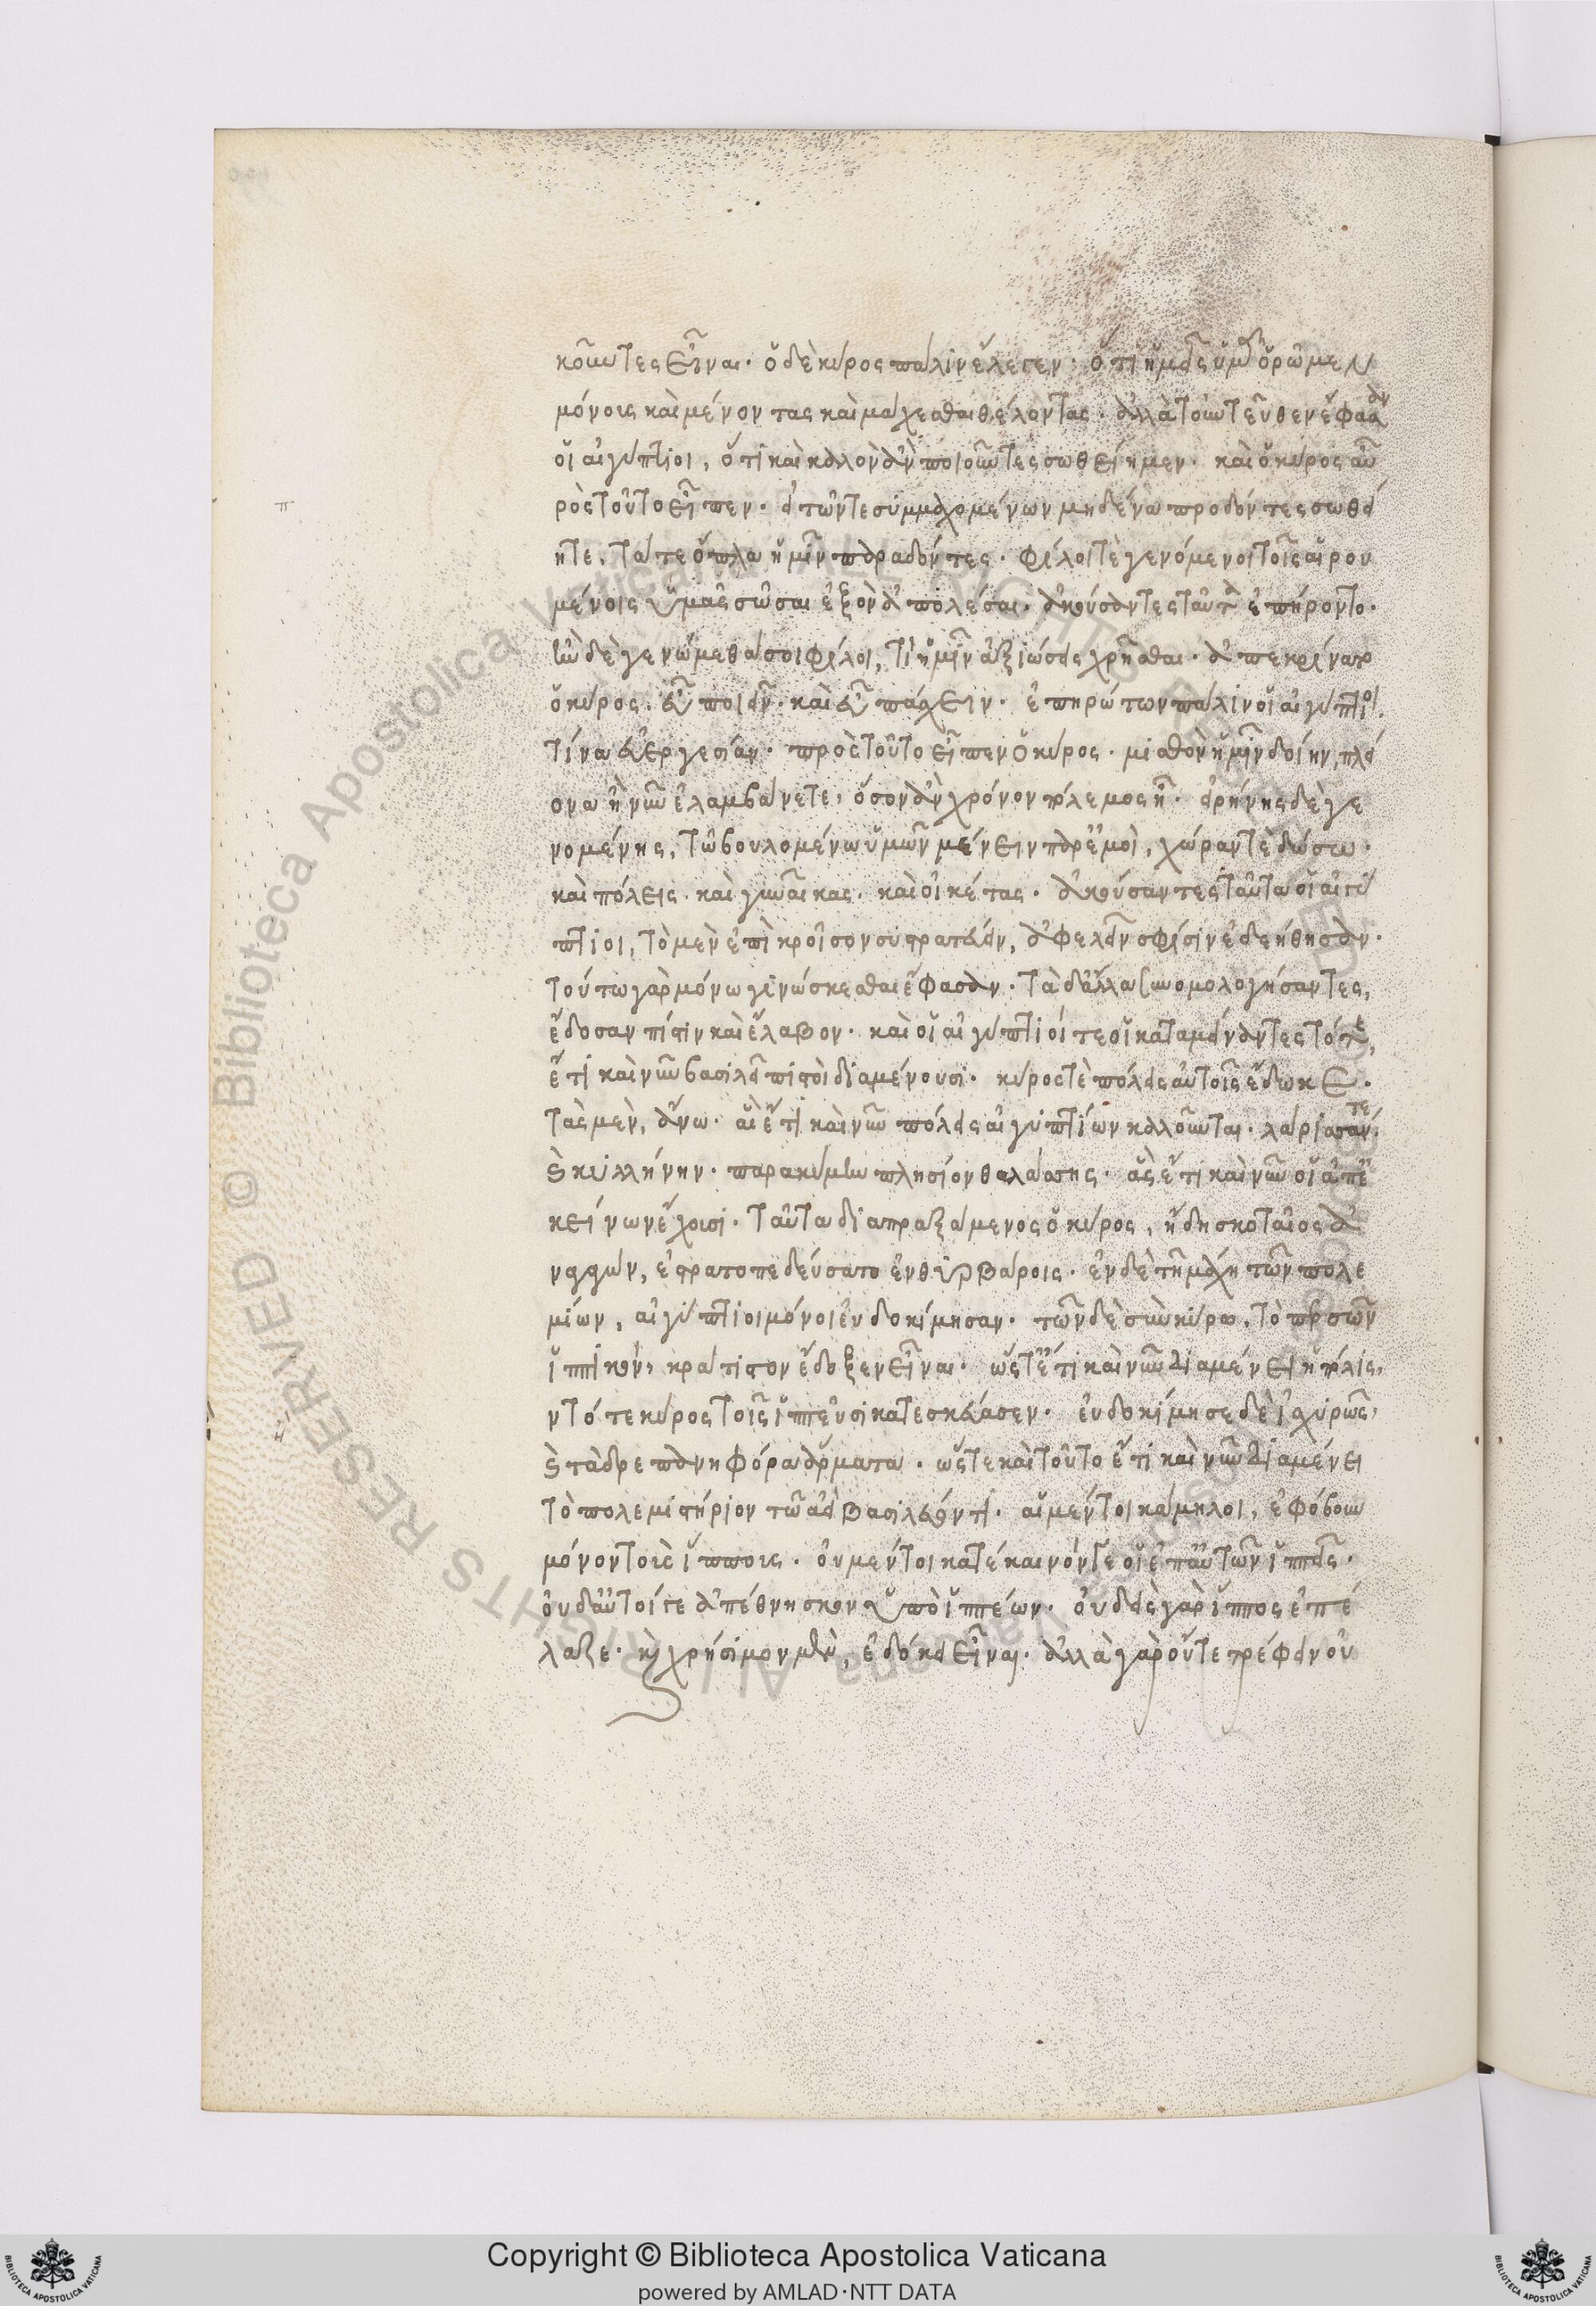 κοῦντες εἶναι. ὁ δὲ κύρος πάλιν ἔλεγεν. ὅτι ἡμεῖς ὑμᾶς ὁρῶμεν
μόνους καὶ μένοντας καὶ μάχεσθαι θέλοντας. ἀλλὰ τοὐντεῦθεν ἔφασαν
οἱ αἰγύπτιοι, ὅτι καὶ καλὸν ἂν ποιοῦντες σωθείημεν. καὶ ὁ κύρος αὖ
ρὸς τοῦτο εἶπεν. εἰ τῶν τε συμμαχομένων μηδένα προδόντες σωθεί
ητε, τά τε ὅπλα ἡμῖν παραδόντες. φίλοι τὲ γενόμενοι τοῖς αἱρου
μένοις ὑμᾶς σῶσαι ἐξὸν ἀπολέσαι. ἀκούσαντες ταῦτα ἐπήροντο.
ἢν δὲ γενώμεθά σοι φίλοι, τί ἡμῖν ἀξιώσεις χρῆσθαι. ἀπεκρίνατο
ὁ κύρος. εὖ ποιεῖν. καὶ εὖ πάσχειν. ἐπηρώτων πάλιν οἱ αἰγύπτιοι.
τίνα εὐεργεσίαν. πρὸς τοῦτο εἶπεν ὁ κύρος. μισθὸν ἡμῖν δοίην, πλεί
ονα ἢ νῦν ἐλαμβάνετε, ὅσον ἂν χρόνον πόλεμος ἦ. εἰρήνης δὲ γε
νομένης, τῶ βουλομένω ὑμῶν μένειν παρ' ἐμοὶ, χώραν τὲ δώσω.
καὶ πόλεις. καὶ γυναῖκας. καὶ οἰκέτας. ἀκούσαντες ταῦτα οἱ αἰγύ
πτιοι, τὸ μὲν ἐπὶ κροῖσον συστρατεύειν, ἀφελεῖν σφίσιν ἐδεήθησαν.
τούτω γὰρ μόνω γινώσκεσθαι ἔφασαν. τὰ δ' ἄλλα συνομολογήσαντες,
ἔδοσαν πίστιν καὶ ἔλαβον. καὶ οἱ αἰγύπτιοί τε οἱ καταμείναντες τότε,
ἔτι καὶ νῦν βασιλεῖ πιστοὶ διαμένουσι. κύρος τὲ πόλεις αὐτοῖς ἔδωκε.
τὰς μὲν, ἄνω. αἳ ἔτι καὶ νῦν πόλεις αἰγυπτίων καλοῦνται. λάρισσάν τε.
καὶ κυλλήνην. παρὰ κύμην πλησίον θαλάσσης. ἃς ἔτι καὶ νῦν οἱ ἀπ' ἐ
κείνων ἔχουσι. ταῦτα διαπραξάμενος ὁ κύρος, ἤδη σκοταῖος ἀ
ναγαγὼν, ἐστρατοπεδεύσατο ἐν θυμβάροις. ἐν δὲ τῆ μάχη τῶν πολε
μίων, αἰγύπτιοι μόνοι εὐδοκίμησαν. τῶν δὲ σὺν κύρω, τὸ περσῶν
ἱππικὸν, κράτιστον ἔδοξεν εἶναι. ὥστ' ἔτι καὶ νῦν διαμένει ἡ ὅπλισις,
ἣν τότε κύρος τοῖς ἱππεῦσι κατεσκεύασεν. εὐδοκίμησε δὲ ἰσχύρως,
καὶ τὰ δρεπανηφόρα ἅρματα. ὥστε καὶ τοῦτο ἔτι καὶ νῦν διαμένει
τὸ πολεμιστήριον τῶ ἀεὶ βασιλεύοντι. αἱ μέντοι κάμηλοι, ἐφόβουν
μόνον τοὺς ἵππους. οὐ μέντοι κατέκαινόν γε οἱ ἐπ' αὐτῶν ἱππεῖς.
οὐδ' αὐτοί γε ἀπέθνησκον ὑπὸ ἱππέων. οὐδεὶς γὰρ ἵππος ἐπέ
λαζε. καὶ χρήσιμον μὲν, ἐδόκει εἶναι. ἀλλὰ γὰρ οὔτε τρέφειν οὐ